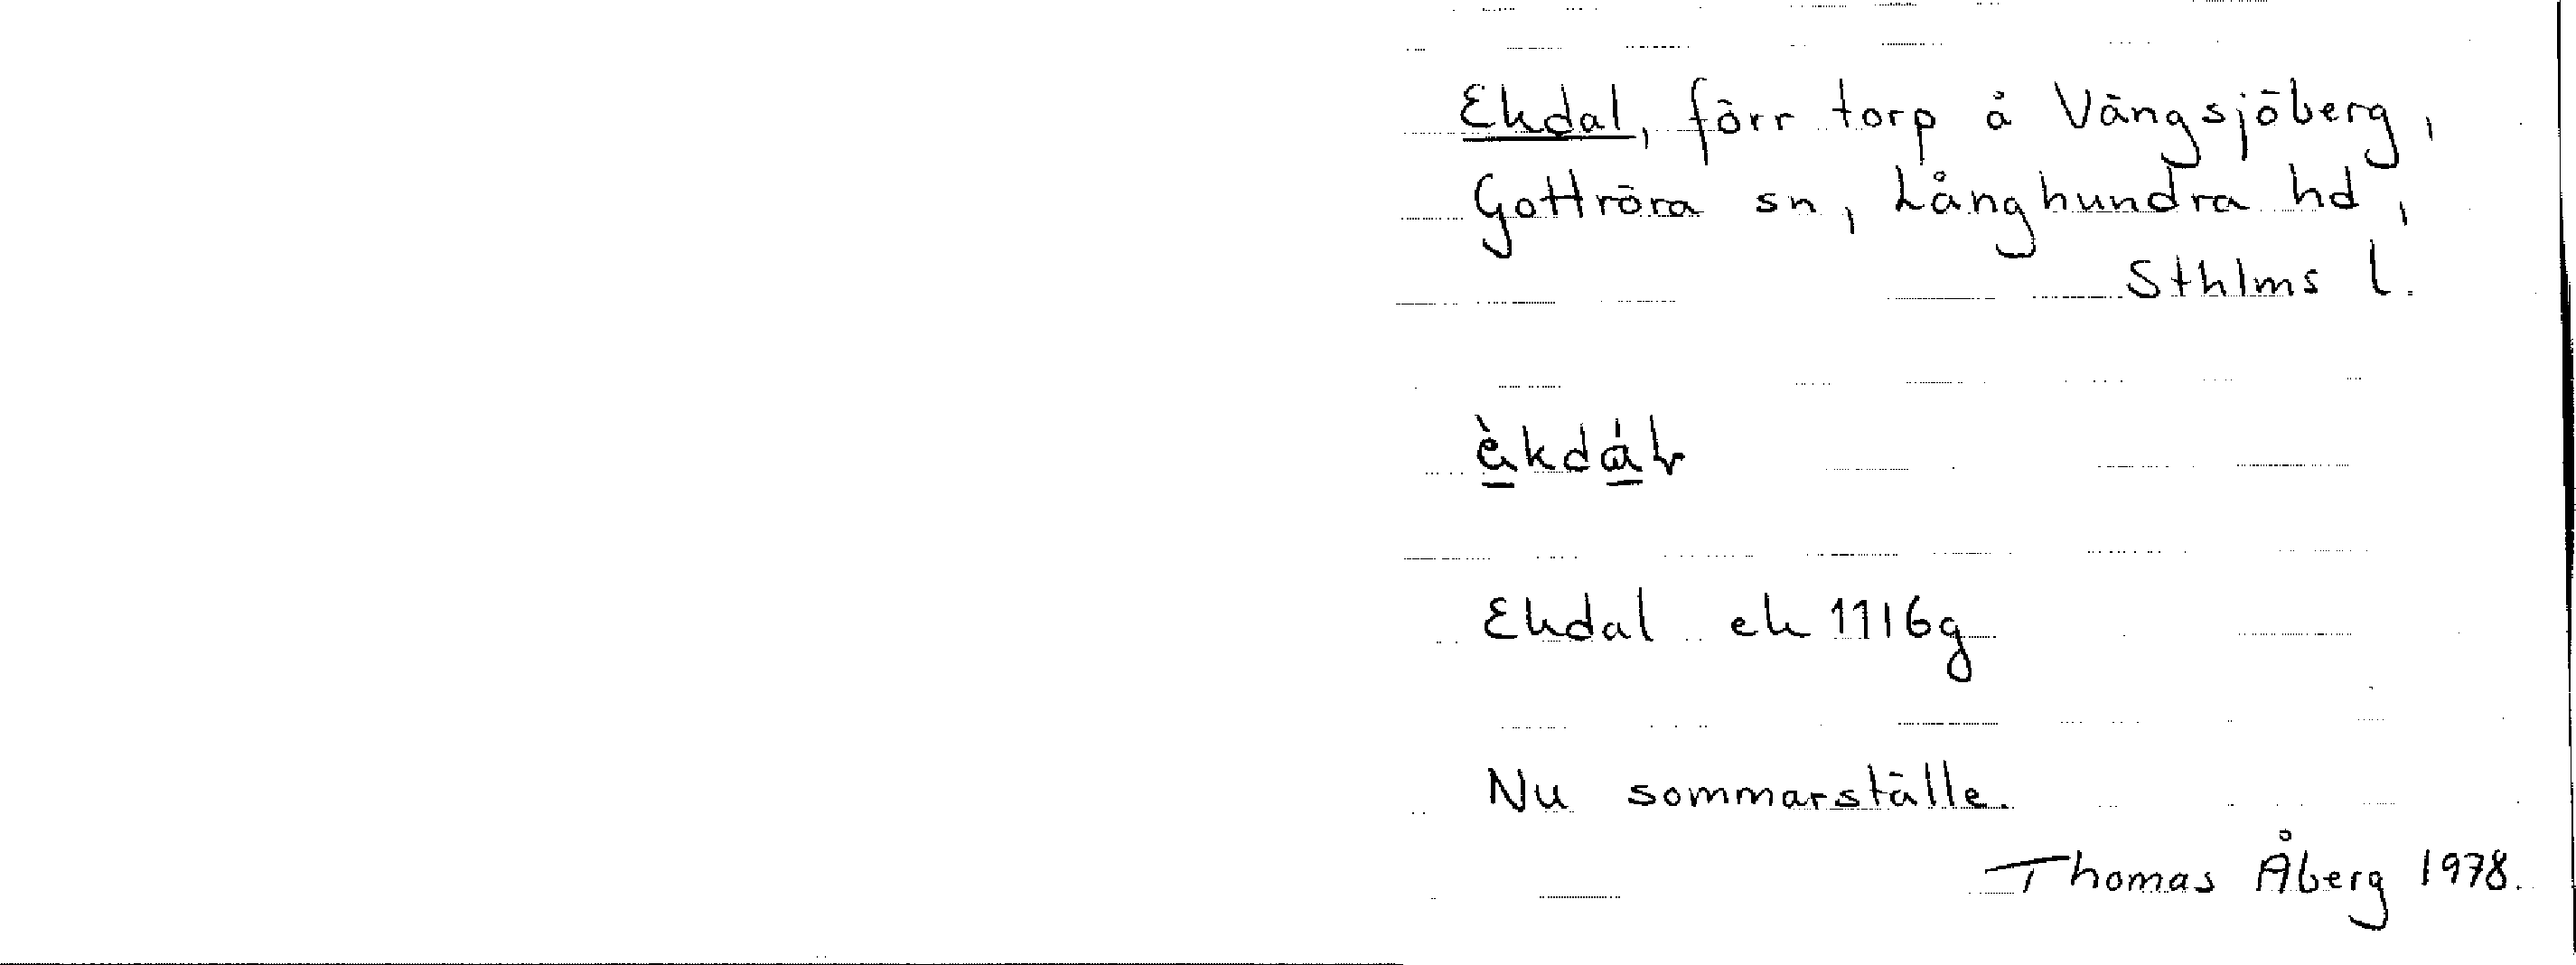 Ekdal, förr torp å Vängsjöberg,
Gottröra sn, Långhundra hd,
Sthlms l.
Ekdal ek 11I6g
Nu sommarställe.
Thomas Åberg 1978.